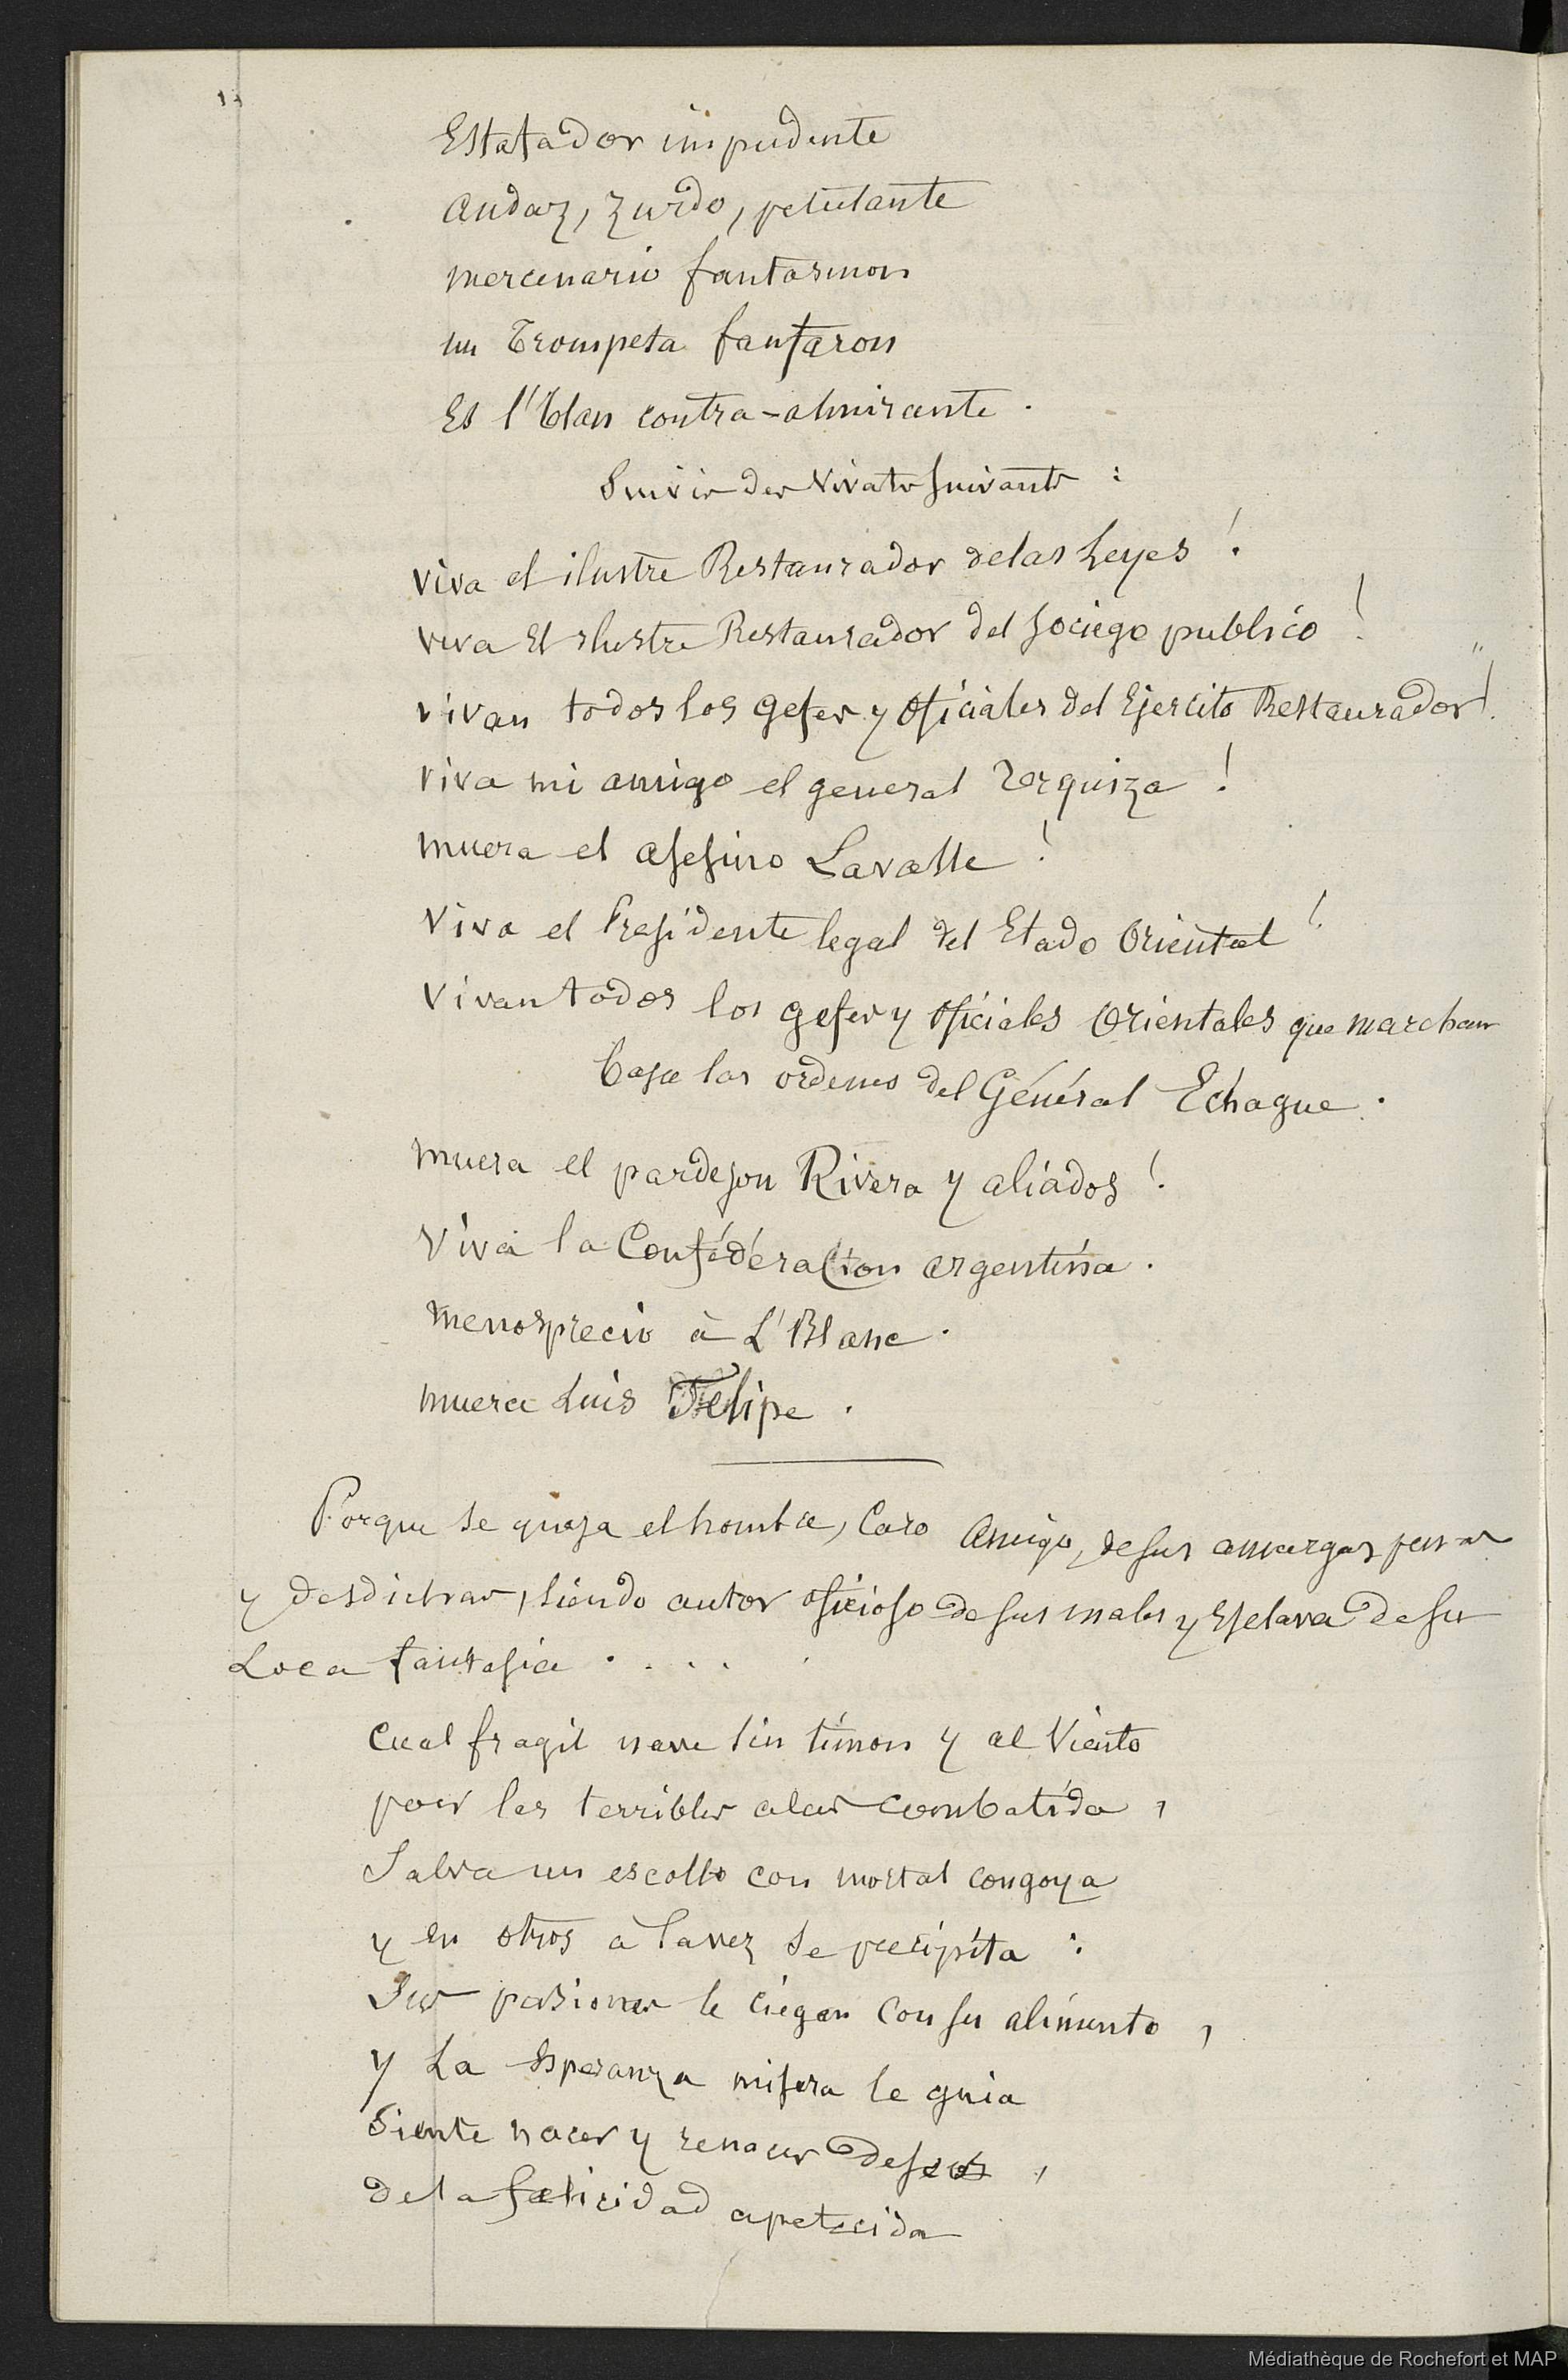 Estafador impudente
audaz, zurdo, petulante
mercenario fantasmon
un Trompeta fanfaron
Es l'Blan contra-almirante.
Suivis des Vivats suivants :
viva el ilustre Restaurador de las Leyes !
viva El ilustre Restaurador del sociego publico !
vivan todos los gefes y oficiales del Ejercito Restaurador !
viva mi amigo el general Urquiza !
muera el asesino Lavalle !
Viva el Presidente legal del Etado Oriental !
Vivan todos los gefes y oficiales Orientales que marchan
baja las ordenes del Général Echague.
muera el pardejon Rivera y aliados !
Viva la Confédéracion argentina.
menosprecio à L'Blanc.
muera Luis Felipe.
Porque se queja el hombre, Caro Amigo, de sus amargas penas
y desdichas, siendo autor oficioso de sus males y Esclava de su
Loca fantasia . . . . .
Cual fragil nave sin timon y al Viento
por las terribles alas combatida,
Salva un escollo con mortal congoya
y en otros à la vez se precipita :
Sus pasiones le ciegan con su alimento,
y La Esperanza misera le guia
Siente nacer y renacer deseos,
de la felicidad apetecida
Médiathèque de Rochefort et MAP